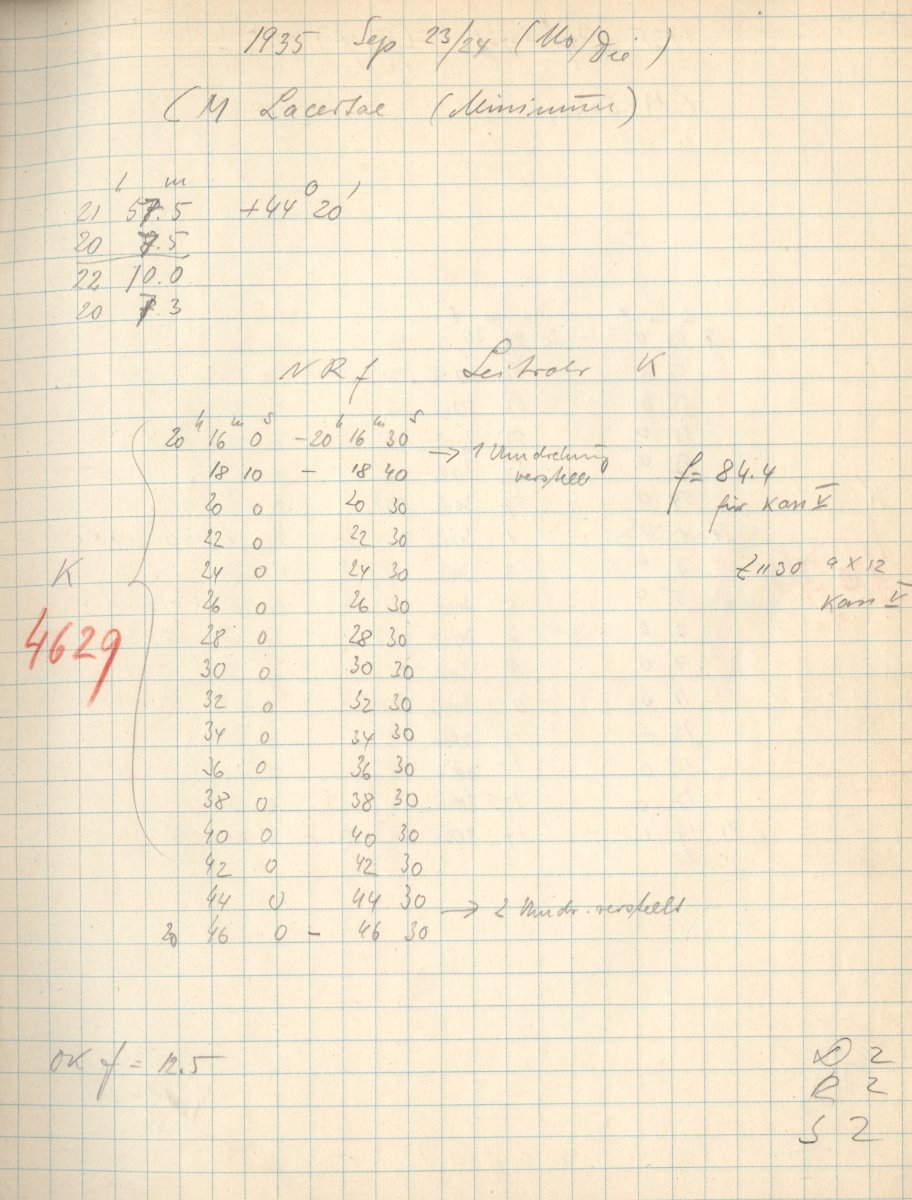 1935 Sep 23/24 (Mo/Die)
CM Lacertae (Minimum)
h m o '
21 57.5 +44 20
20 7.5
22 10.0
20 7 3
NRf Leitrohr K
20h 16m 0s - 20h 16m 30s → 1 Umdrehung verstellt
18 10 - 18 40
f = 84.4
20 0 20 30
für Kass V
22 0 22 30
K 24 0 24 30
9 x 12
26 0 26 30
Kass V
4629
28 0 28 30
30 0 30 30
32 0 32 30
34 0 34 30
36 0 36 30
38 0 38 30
40 0 40 30
42 0 42 30
44 0 44 30 → 2 Umdr. verstellt
20 46 0 - 46 30
OK f = 12.5
D 2
R 2
S 2